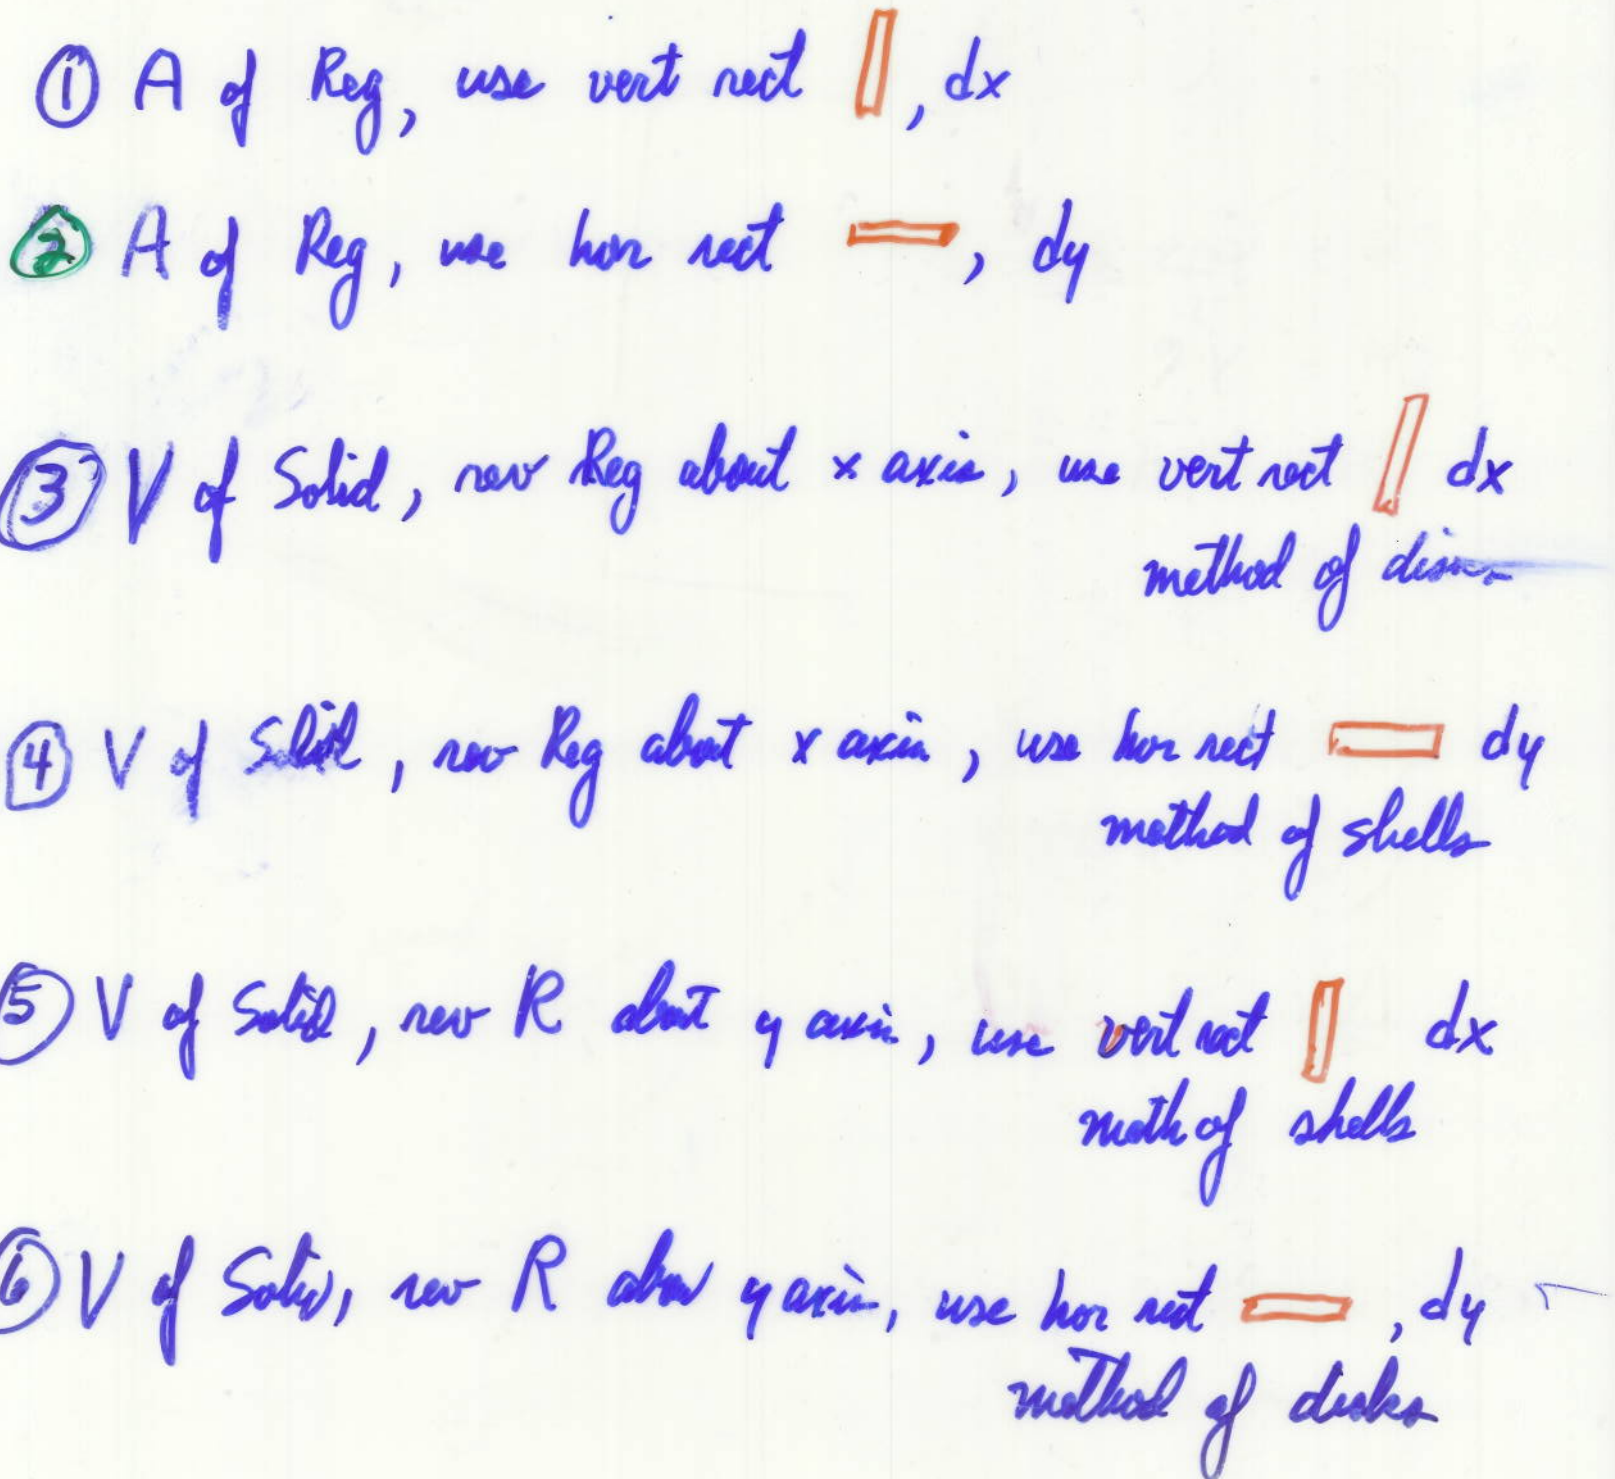 ① A of Reg, use vert rect , dx
② A of Reg, use hor rect , dy
③ V of Solid, rev Reg about x axis, use vert rect dx
method of
④ V of Solid, rev Reg about x axis, use hor rect dy
method of shells
⑤ V of Solid, rev R about y axis, use vert rect dx
meth of shells
⑥ V of , rev R y axis, use hor rect , dy
method of disks